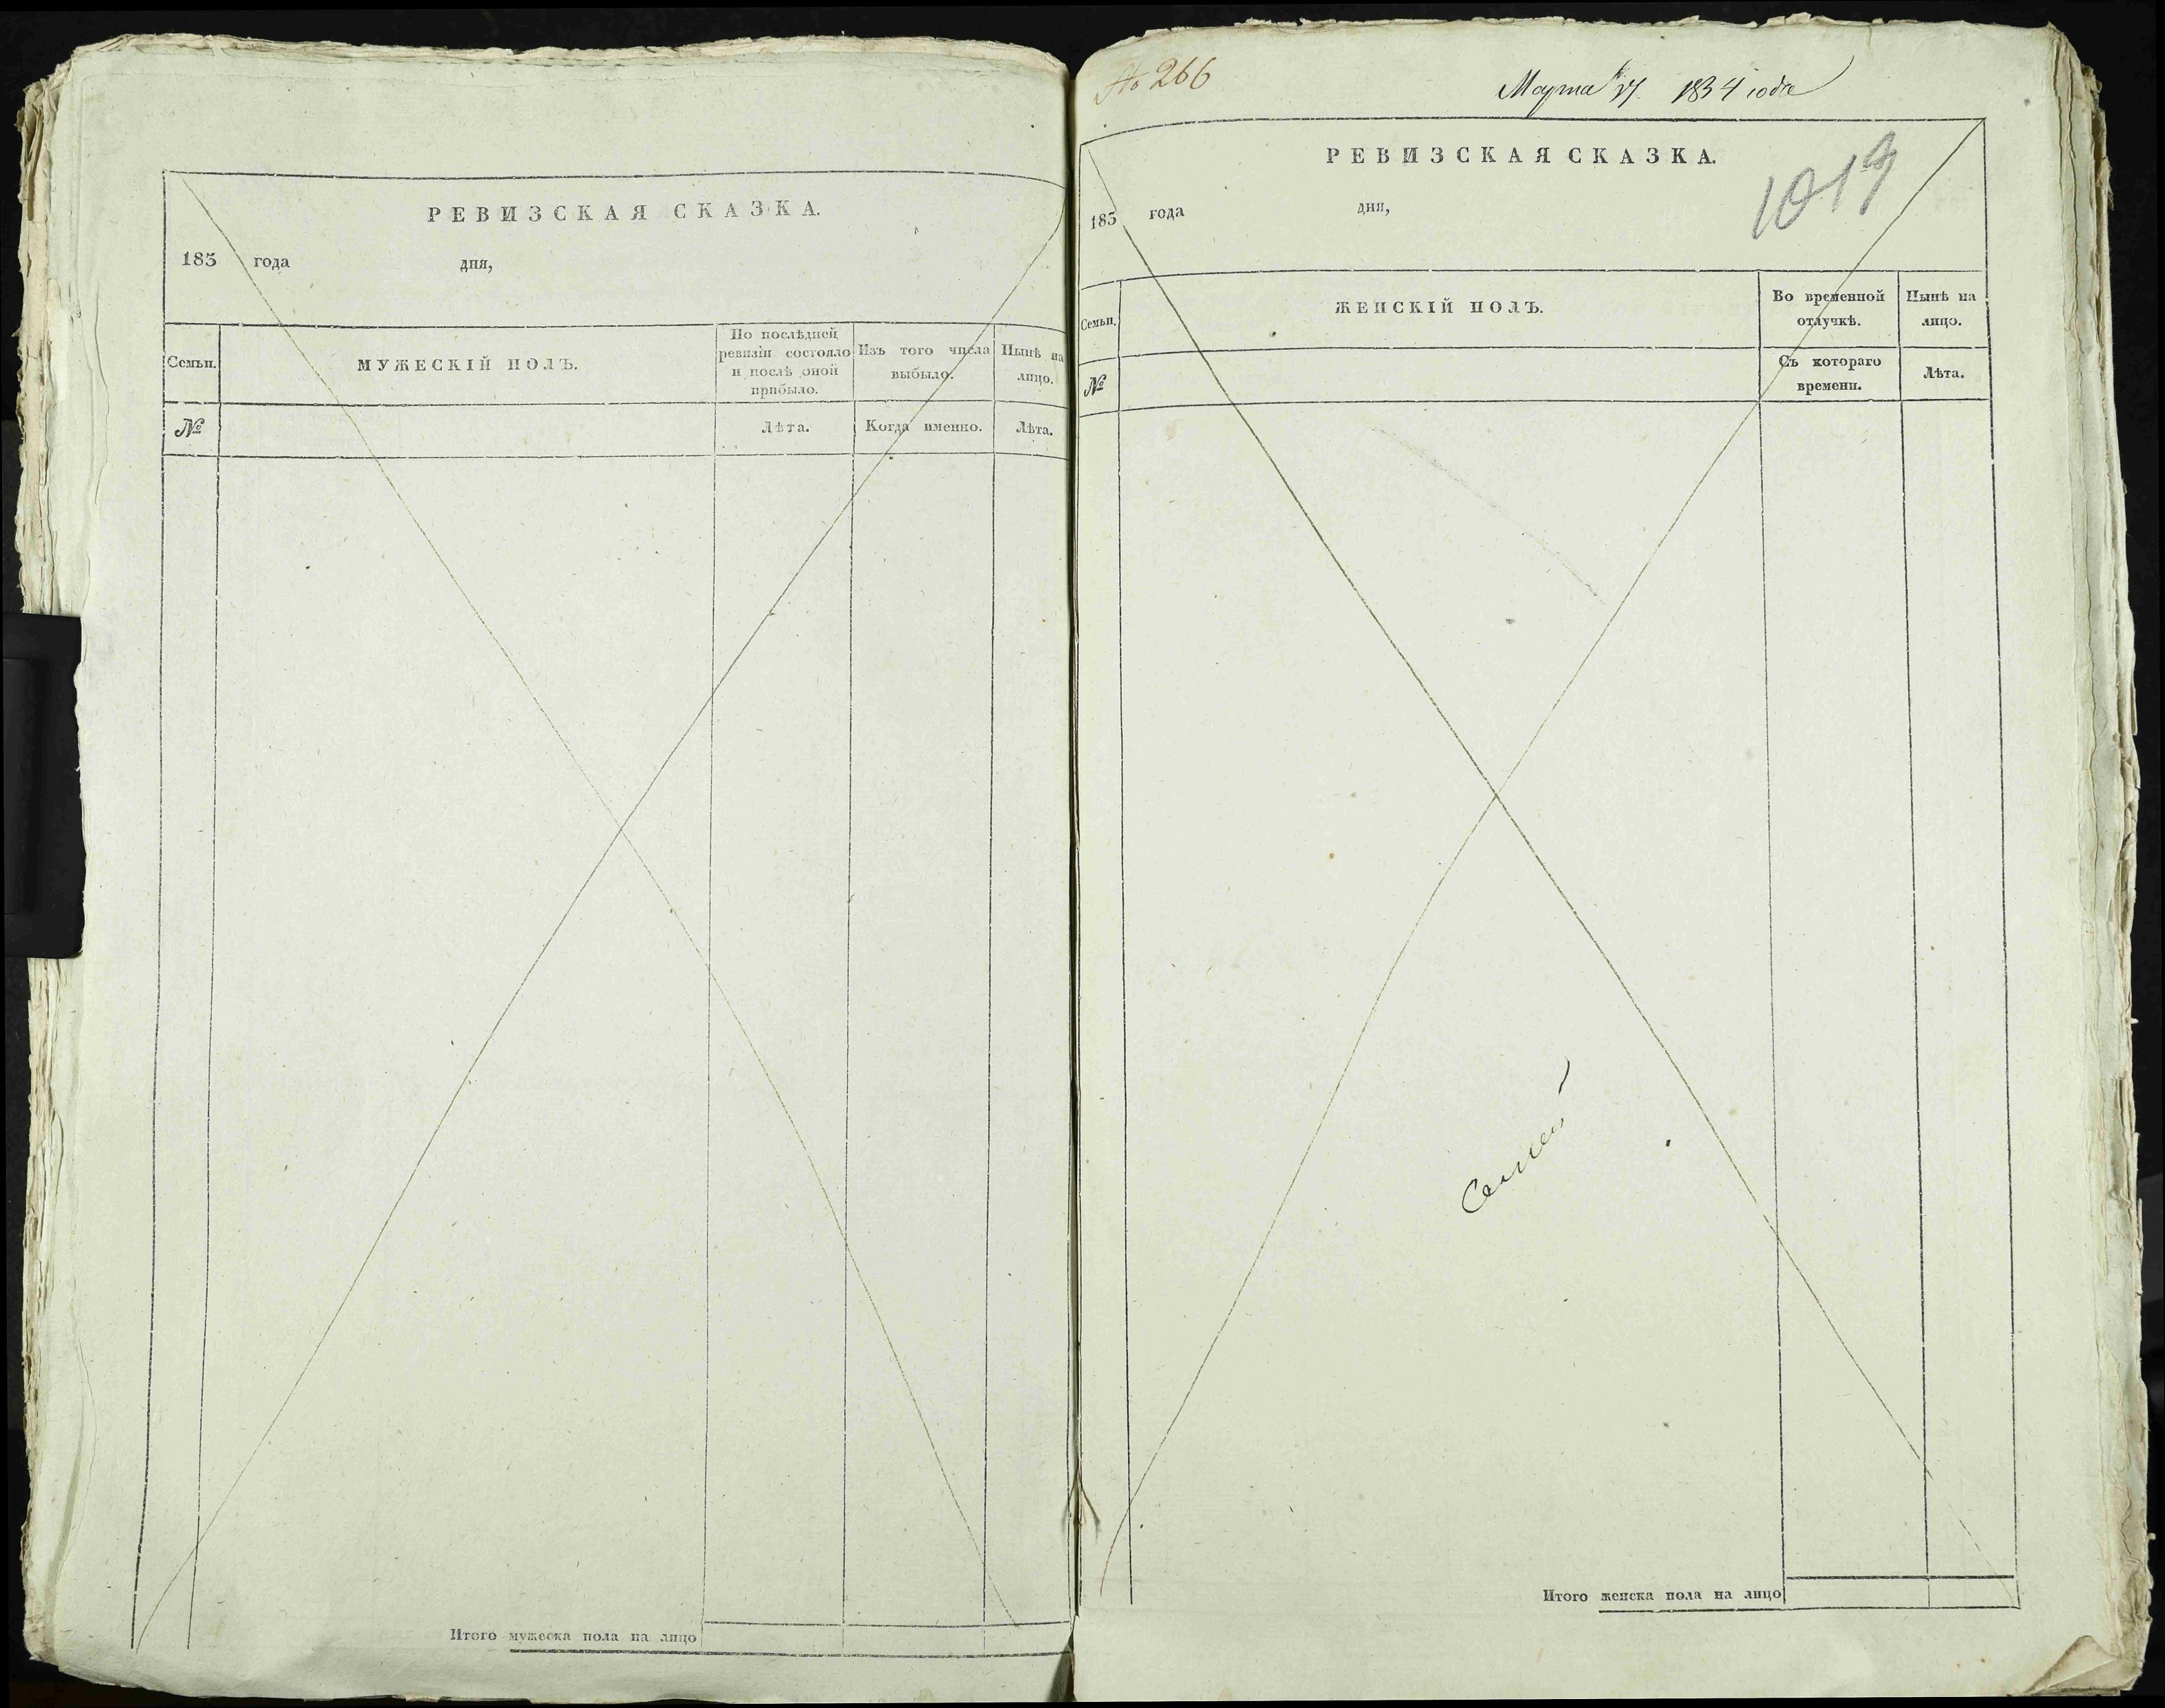 РЕВИЗСКАЯ СКАЗКА.
183 года дня,
Семьи.
МУЖЕСКІЙ ПОЛЪ.
По послѣдней ревизіи состояло и послѣ оной прибыло.
Изъ того числа выбыло.
Нынѣ на лицо.
№
Лѣта.
Когда именно.
Лѣта.
Итого мужеска пола на лицо
№ 266
Марта 1834 года
РЕВИЗСКАЯ СКАЗКА.
1017
183 года дня,
Семьи.
ЖЕНСКІЙ ПОЛЪ.
Во временной отлучкѣ.
Нынѣ на лицо.
№
Съ котораго времени.
Лѣта.
Итого женска пола на лицо